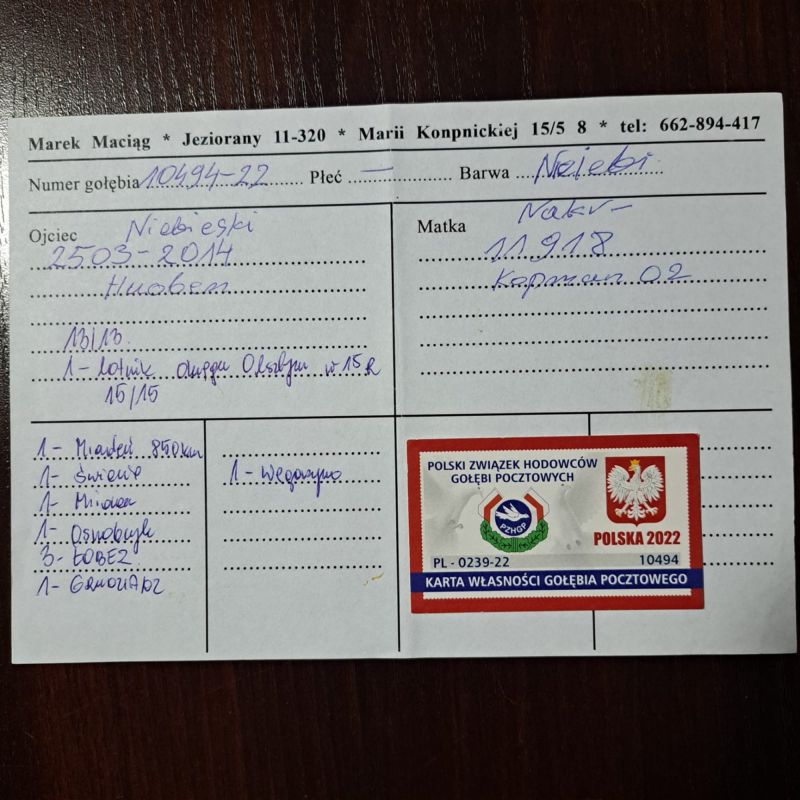 Marek Maciąg * Jeziorany 11-320 * Marii Konpnickiej 15/5 8 * tel: 662-894-417
Numer gołębia 10494-22 Płeć — Barwa
Ojciec Niebieski
2503-2014
Huoben
13/13
1 - lotnik w 15 R
15/15
Matka Nakr-
11918
Kopman 02
1 - 850km
1 - Świenie
1 -
1 -
3 - ŁOBEZ
1 -
1 - Węgorzyno
POLSKI ZWIĄZEK HODOWCÓW
GOŁĘBI POCZTOWYCH
PZHGP
POLSKA 2022
PL - 0239-22 10494
KARTA WŁASNOŚCI GOŁĘBIA POCZTOWEGO